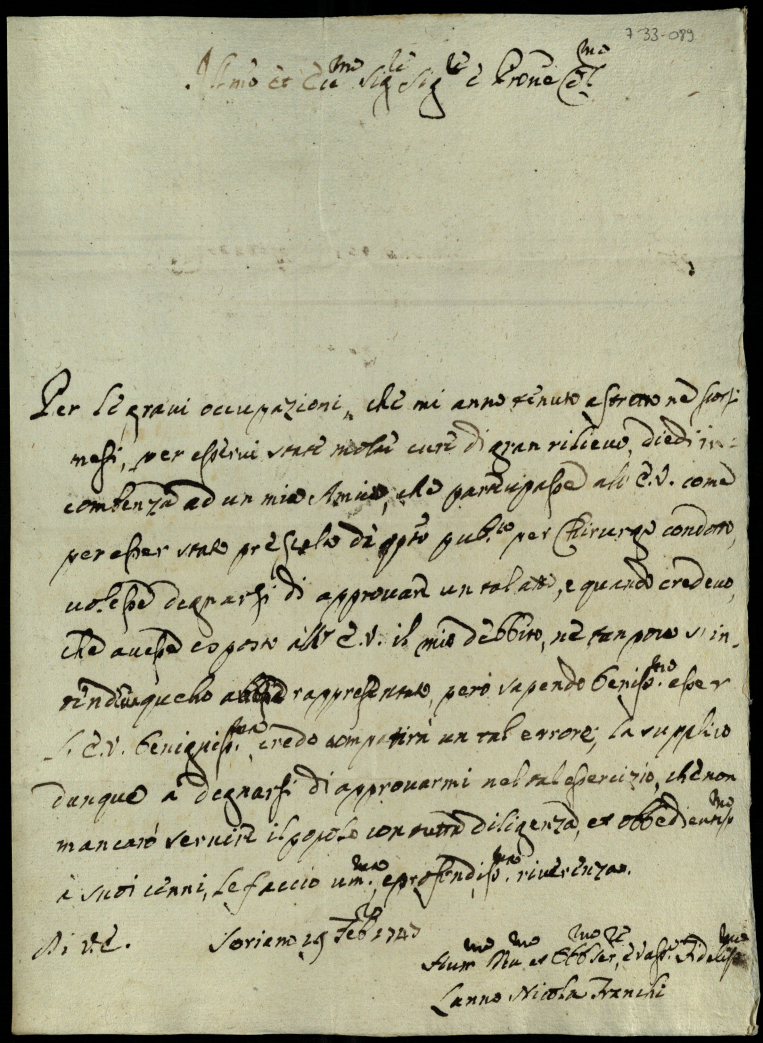 7-33-089
Ill.mo et Ecc.mo Sig.re Sig.re e Prone Col.mo
Per le gravi occupazioni, che mi anno tenuto astretto ne scorsi
mesi, per esservi state molte cure di gran rilievo, diedi in=
combenza ad un mio Amico, che participasse all'E.V. come
per esser stato prescielto da qsto pub.co per Chirurgo condotto,
volesse degnarsi di approvare un tal atto, e quando credevo,
che avesse esposto all'E.V. il mio debbito, ne tanpoco s'in=
tende quello abbia rappresentato, però sapendo beniss.mo esser
l'E.V. benigniss.ma, credo compatirà un tal errore; la supplico
dunque à degnarsi di approvarmi nel tal esercizio, che non
mancarò servire il popolo con tutta diligenza, et obbedientiss.mo
à suoi cenni, le faccio um.ma, e profondiss.ma riverenza.
Di V.E. Soriano 19 Feb.ro 1747
Hum.mo et Obb. Ser.re Fideliss.mo
Nicola Franchi